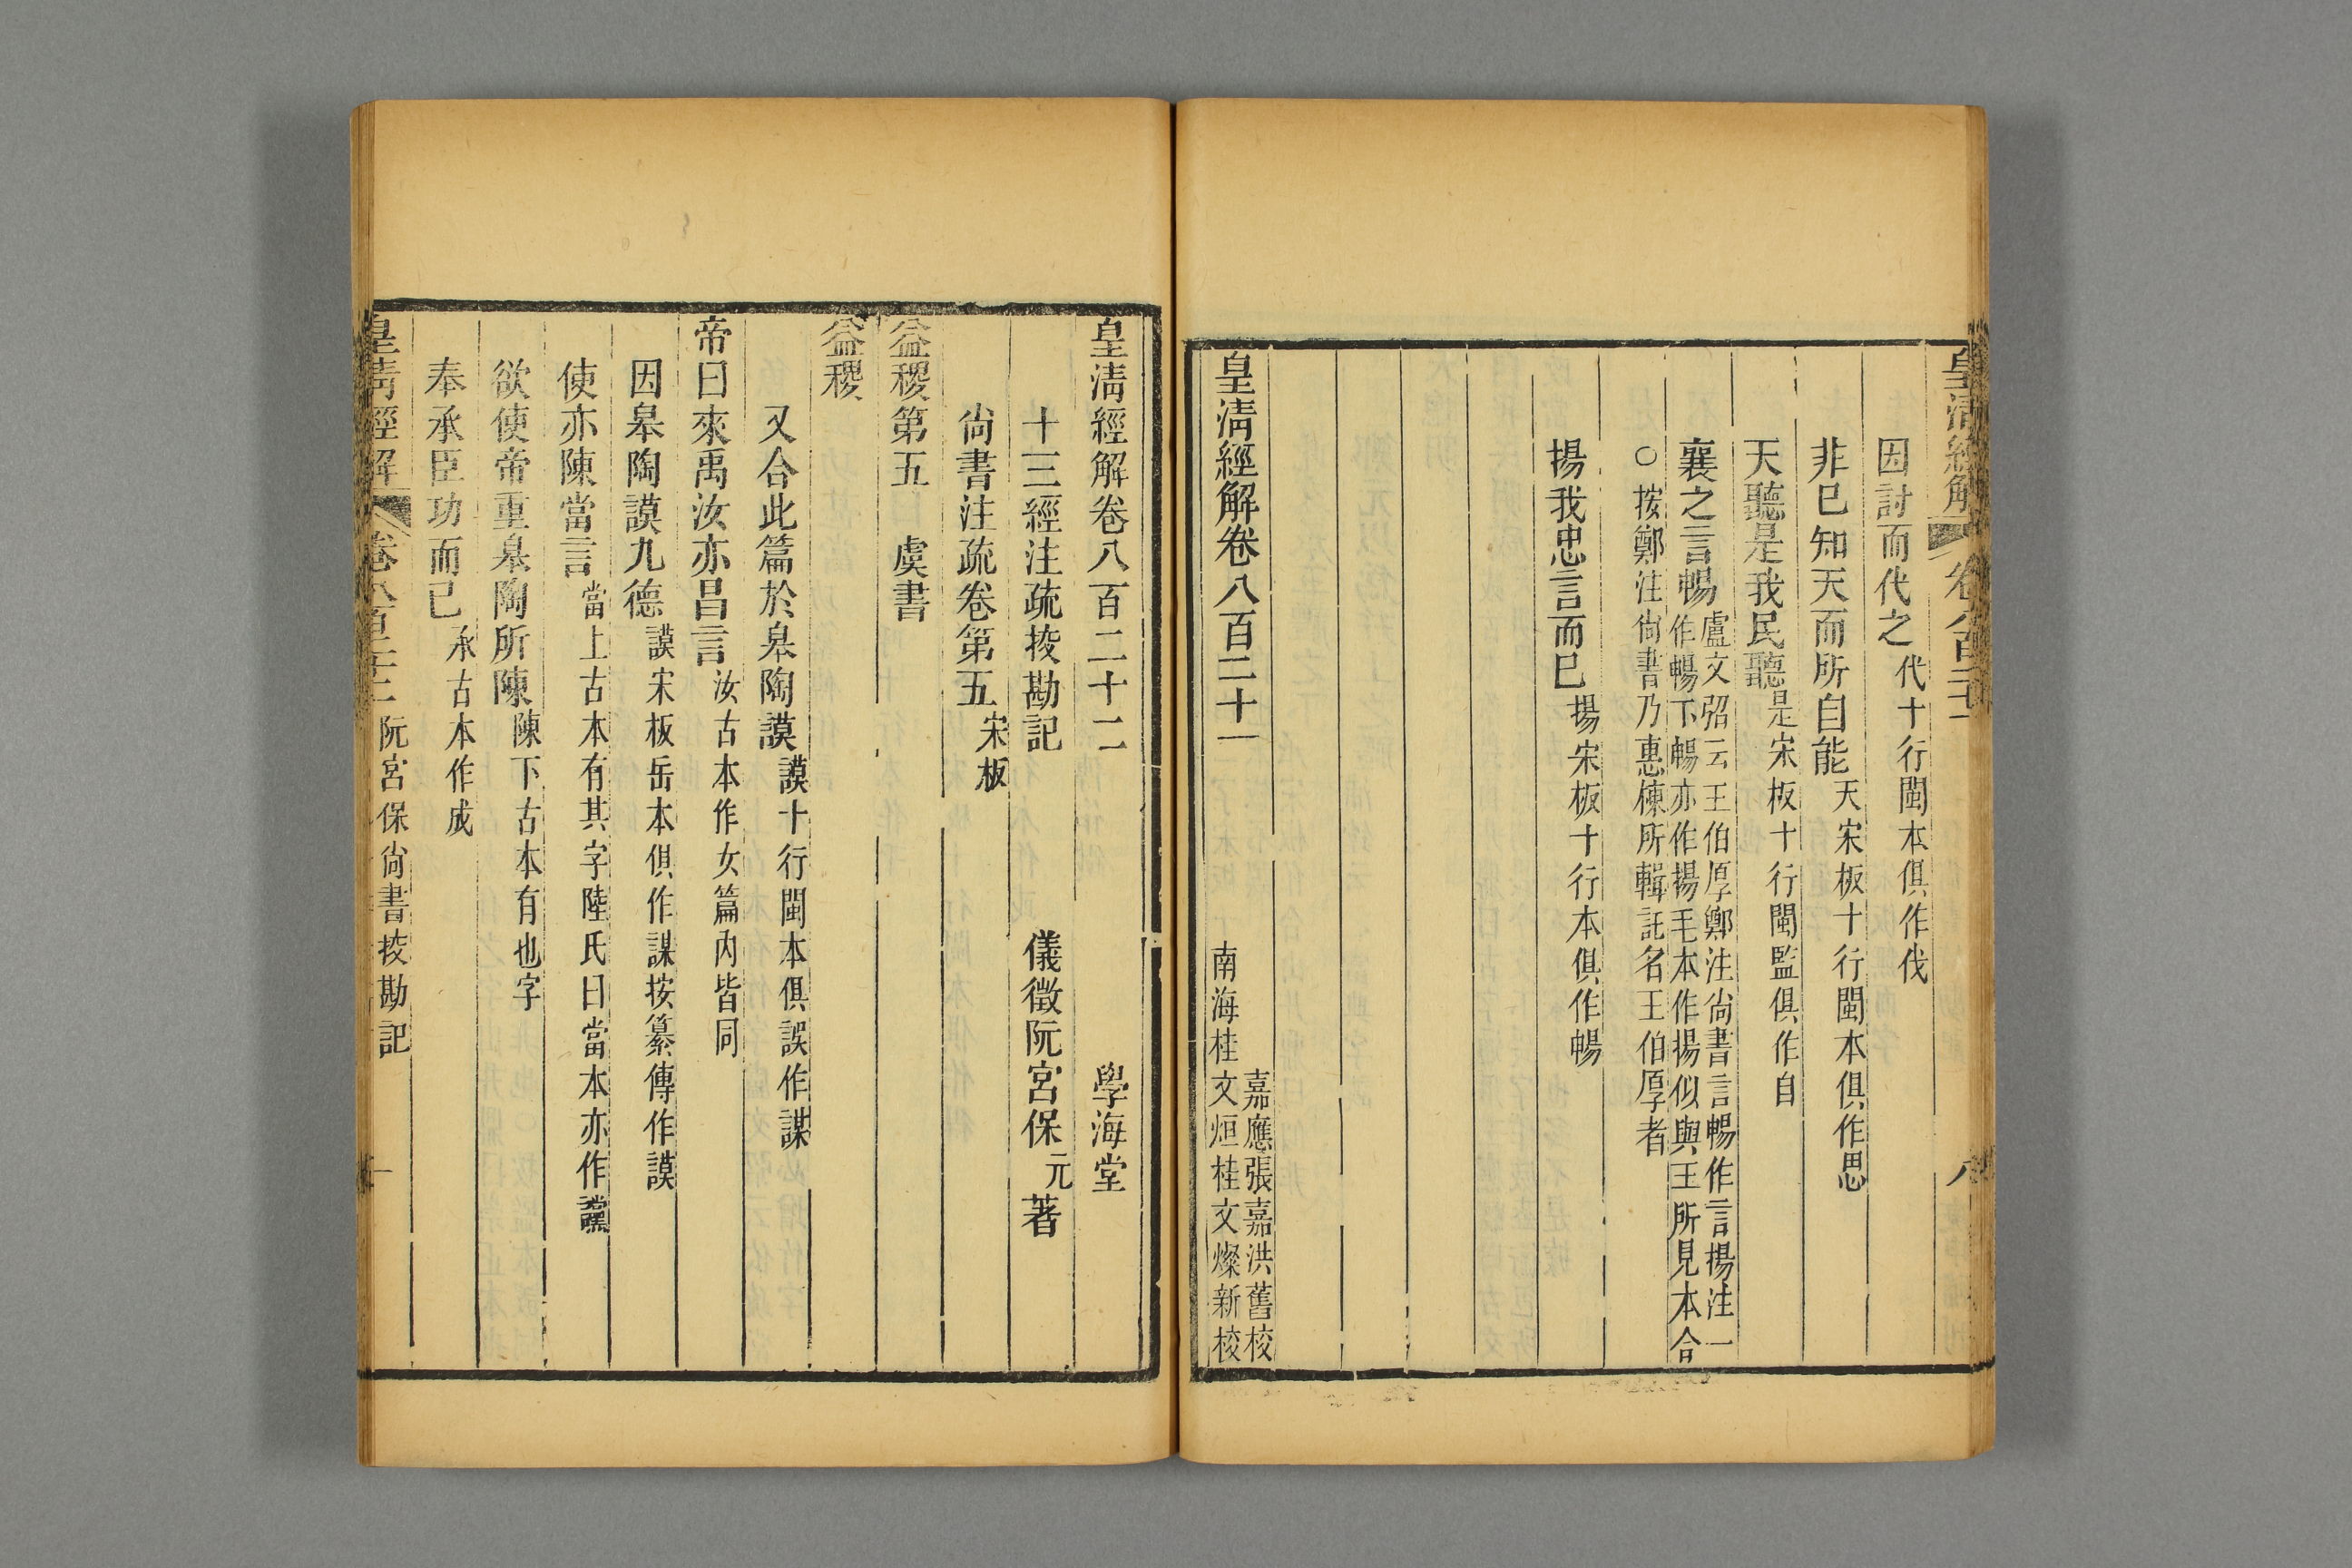 皇清經解 卷八百二十一 八
因討而代之代十行閩本俱作伐
非已知天而所自能天宋板十行閩本俱作思
天聽是我民聽是宋板十行閩監俱作自
襄之言暢盧文弨云王伯厚鄭注尚書言暢作言揚注一
作暢下暢亦作揚毛本作揚似與王所見本合
○按鄭注尚書乃惠棟所輯託名王伯厚者
揚我忠言而已揚宋板十行本俱作暢
皇清經解卷八百二十一
嘉應張嘉洪舊校
南海桂文烜桂文燦新校
皇清經解卷八百二十二 學海堂
十三經注疏挍勘記 儀徵阮宮保元著
尚書注疏卷第五宋板
益稷第五 虞書
益稷
又合此篇於皋陶謨謨十行閩本俱誤作謀
帝曰來禹汝亦昌言汝古本作女篇內皆同
因皋陶謨九德謨宋板岳本俱作謀按纂傳作謨
使亦陳當言當上古本有其字陸氏曰當本亦作讜
欲使帝重皋陶所陳陳下古本有也字
奉承臣功而已承古本作成
皇清經解 卷八百二十二 阮宮保尚書挍勘記 一